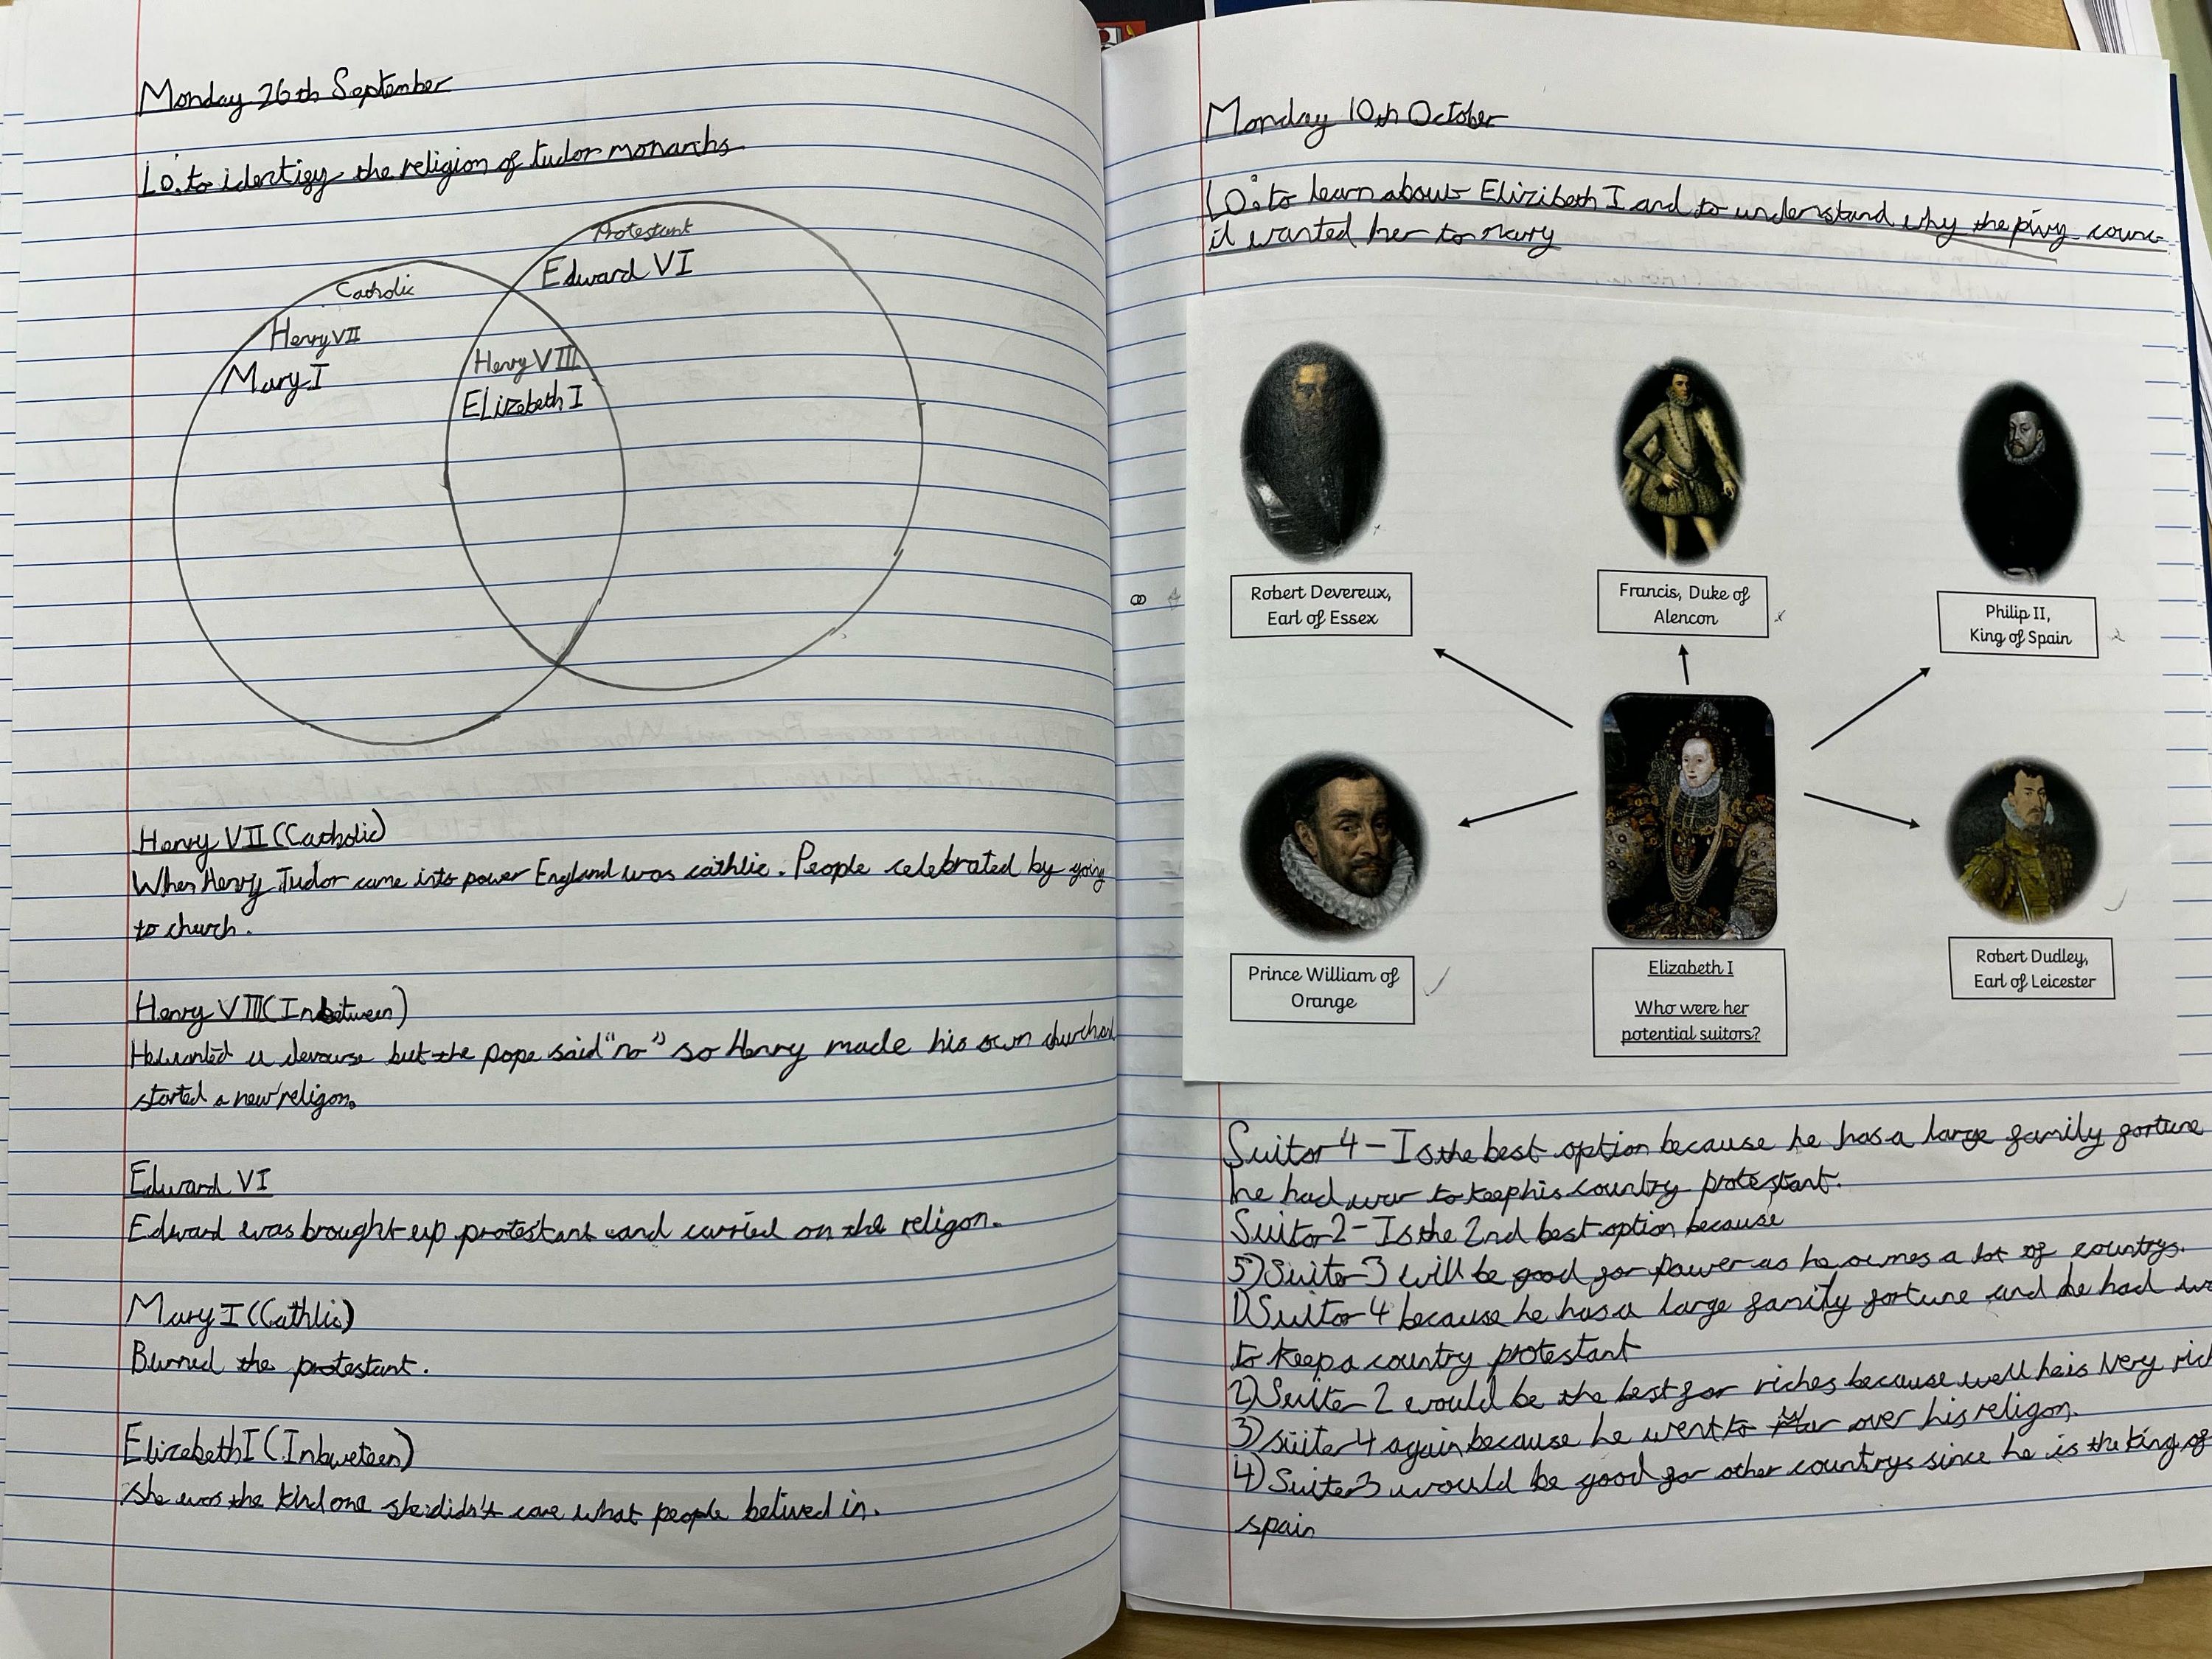 Monday 26th September
LO: to identify the religion of tudor monarchs
Protestant
Edward VI
Catholic
Henry VII
Mary I
Henry VIII
Elizebeth I
Henry VII (Catholic)
When Henry Tudor came into power England was cathlic. People celebrated by going
to church.
Henry VIII (Inbetween)
He wanted a devourse but the Pope said "no" so Henry made his own church and
started a new religon.
Edward VI
Edward was brought up protestant and carried on the religon.
Mary I (Cathlic)
Burned the protestant.
Elizebeth I (Inbweteen)
She was the kind one she didn't care what people belived in.
Monday 10th October
LO: to learn about Elizibeth I and to understand why the pivy counc
il wanted her to mary
Robert Devereux,
Earl of Essex
Francis, Duke of
Alencon
Philip II,
King of Spain
Prince William of
Orange
Elizabeth I
Who were her
potential suitors?
Robert Dudley,
Earl of Leicester
Suitor 4 - Is the best option because he has a large family fortune
he had war to keep his country protestant.
Suitor 2 - Is the 2nd best option because
5) Suiter 3 will be good for power as he ownes a lot of countrys.
1) Suitor 4 because he has a large family fortune and he had
to keep a country protestant
2) Suiter 2 would be the best for riches because well he is very
3) suiter 4 again because he went to war over his religon.
4) Suiter 3 would be good for other countrys since he is the king of
spain